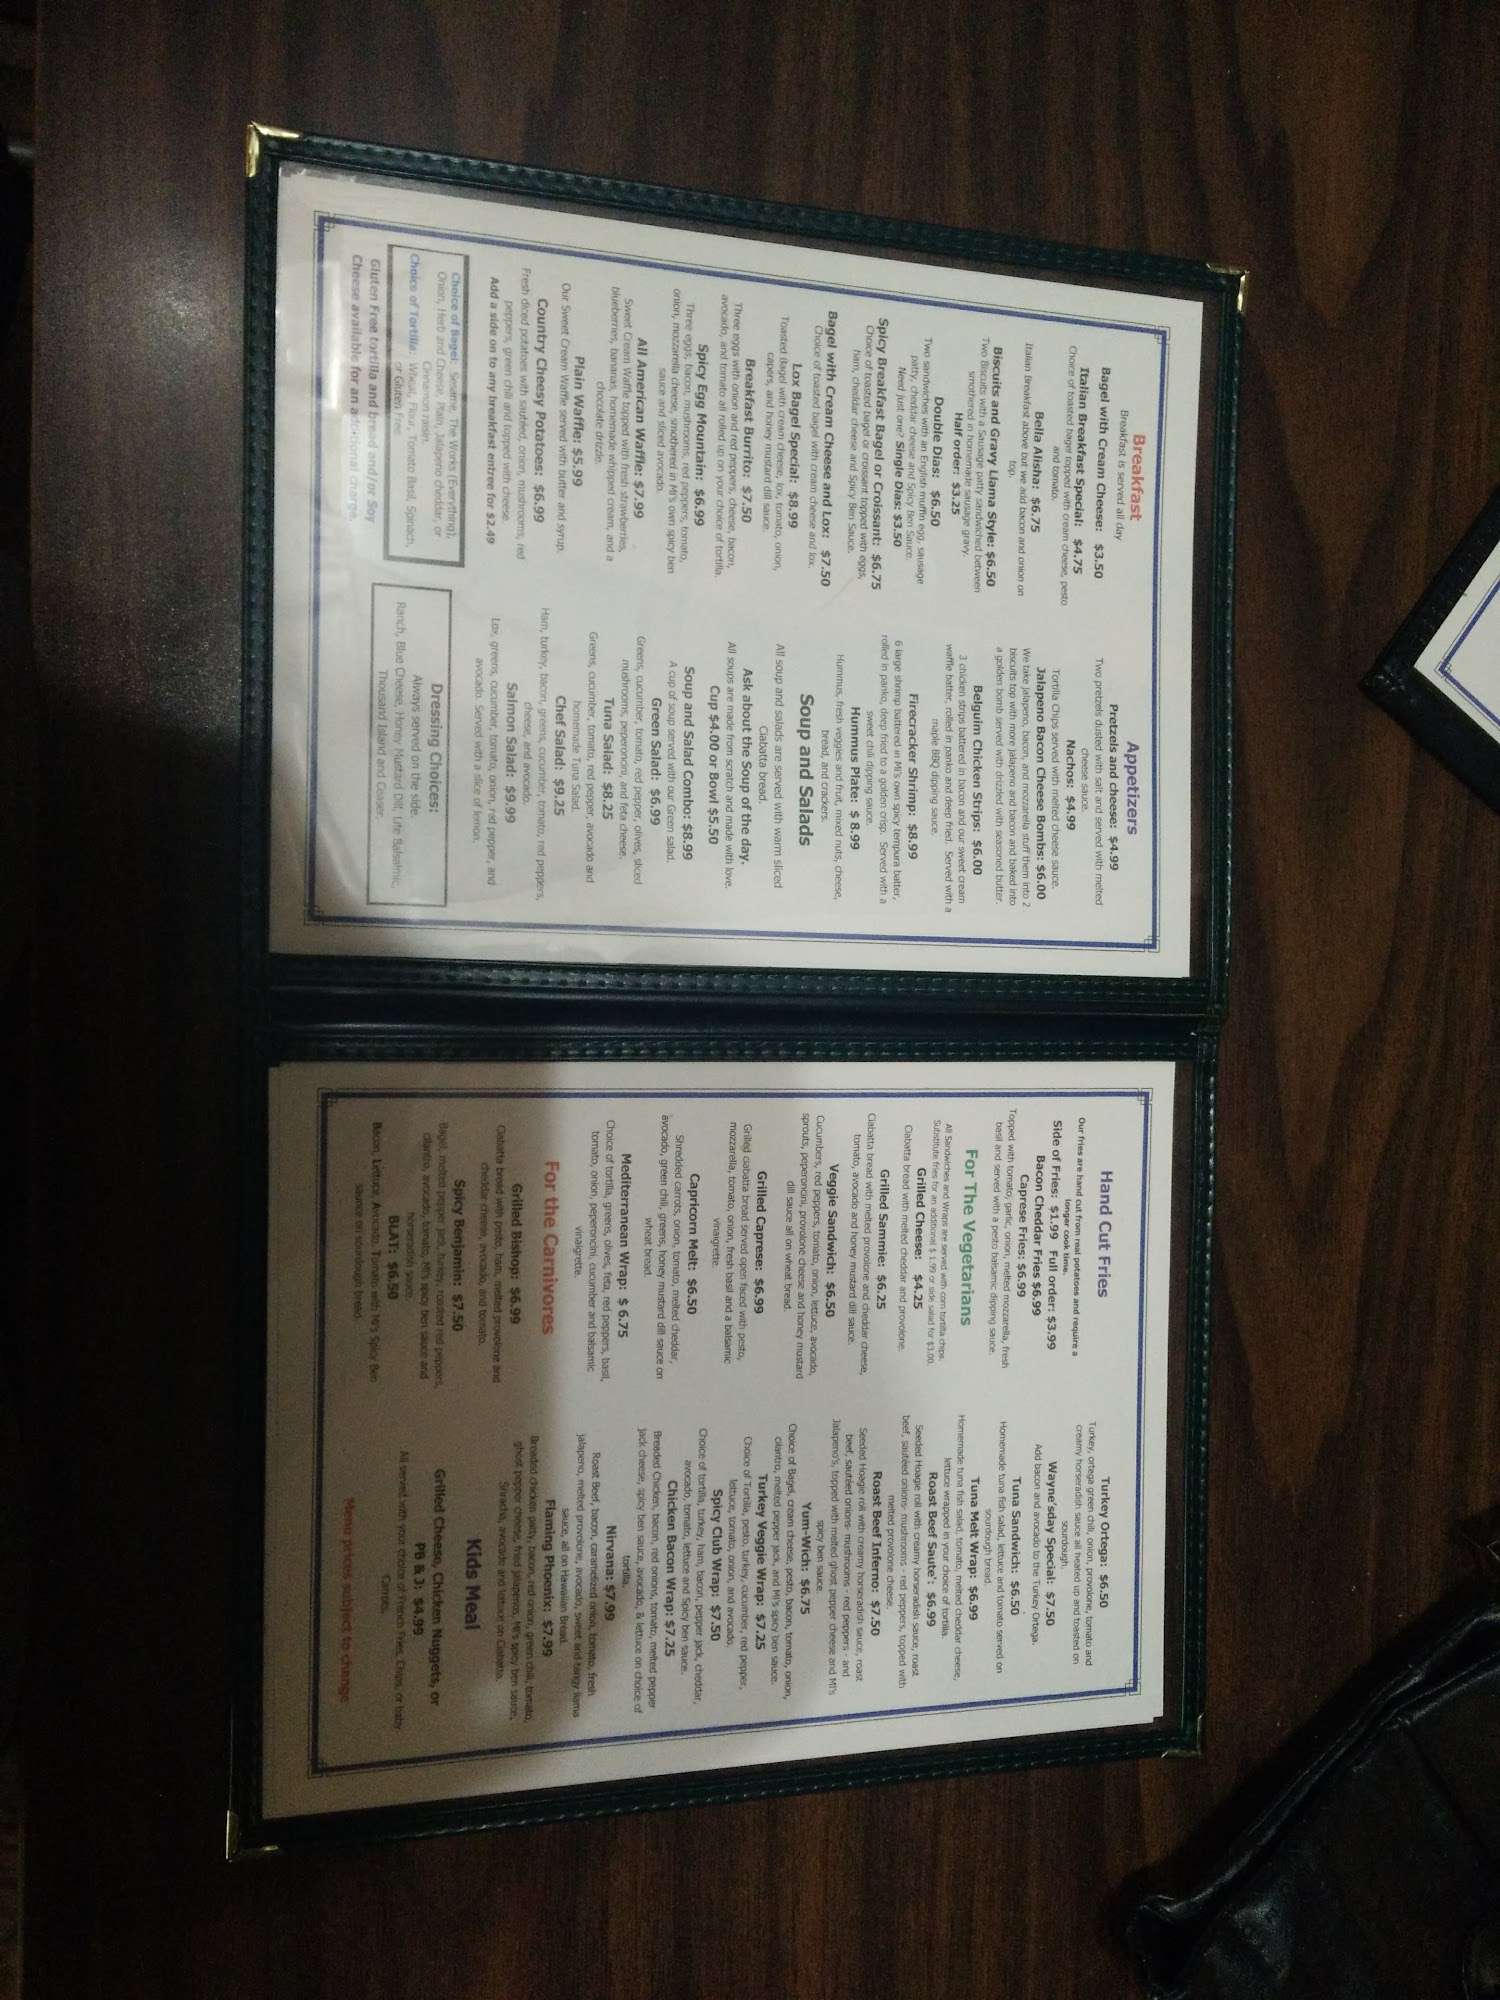 Breakfast
Breakfast is served all day
Bagel with Cream Cheese: $3.50
Italian Breakfast Special: $4.75
Choice of toasted bagel topped with cream cheese, pesto
and tomato.
Bella Alisha: $6.75
Italian Breakfast above but we add bacon and onion on
top.
Biscuits and Gravy Llama Style: $6.50
Two Biscuits with a Sausage patty sandwiched between
smothered in homemade sausage gravy.
Half order: $3.25
Double Dias: $6.50
Two sandwiches with an English muffin egg, sausage
patty, cheddar cheese and Spicy Ben Sauce.
Need just one? Single Dias: $3.50
Spicy Breakfast Bagel or Croissant: $6.75
Choice of toasted bagel or croissant topped with eggs,
ham, cheddar cheese and Spicy Ben Sauce.
Bagel with Cream Cheese and Lox: $7.50
Choice of toasted bagel with cream cheese and lox.
Lox Bagel Special: $8.99
Toasted Bagel with cream cheese, lox, tomato, onion,
capers, and honey mustard dill sauce.
Breakfast Burrito: $7.50
Three eggs with onion and red peppers, cheese, bacon,
avocado, and tomato all rolled up on your choice of tortilla.
Spicy Egg Mountain: $6.99
Three eggs, bacon, mushrooms, red peppers, tomato,
onion, mozzarella cheese, smothered in MI's own spicy ben
sauce and sliced avocado.
All American Waffle: $7.99
Sweet Cream Waffle topped with fresh strawberries,
blueberries, bananas, homemade whipped cream, and a
chocolate drizzle.
Plain Waffle: $5.99
Our Sweet Cream Waffle served with butter and syrup.
Country Cheesy Potatoes: $6.99
Fresh diced potatoes with sautéed, onion, mushrooms, red
peppers, green chili and topped with cheese
Add a side on to any breakfast entree for $2.49
Choice of Bagel: Sesame, The Works (Everything),
Onion, Herb and Cheese, Plain, Jalapeno cheddar, or
Cinnamon raisin.
Choice of Tortilla: Wheat, Flour, Tomato Basil, Spinach,
or Gluten Free
Gluten Free tortilla and bread and/or Soy
Cheese available for an additional charge.
Appetizers
Pretzels and cheese: $4.99
Two pretzels dusted with salt and served with melted
cheese sauce.
Nachos: $4.99
Tortilla Chips served with melted cheese sauce.
Jalapeno Bacon Cheese Bombs: $6.00
We take jalapeno, bacon, and mozzarella stuff them into 2
biscuits top with more jalapeno and bacon and baked into
a golden bomb served with drizzled with seasoned butter.
Belguim Chicken Strips: $6.00
3 chicken strips battered in bacon and our sweet cream
waffle batter, rolled in panko and deep fried. Served with a
maple BBQ dipping sauce.
Firecracker Shrimp: $8.99
6 large shrimp battered in MI's own spicy tempura batter,
rolled in panko, deep fried to a golden crisp. Served with a
sweet chili dipping sauce.
Hummus Plate: $ 8.99
Hummus, fresh veggies and fruit, mixed nuts, cheese,
bread, and crackers.
Soup and Salads
All soup and salads are served with warm sliced
Ciabatta bread.
Ask about the Soup of the day.
All soups are made from scratch and made with love.
Cup $4.00 or Bowl $5.50
Soup and Salad Combo: $8.99
A cup of soup served with our Green salad.
Green Salad: $6.99
Greens, cucumber, tomato, red pepper, olives, sliced
mushrooms, peperoncini, and feta cheese.
Tuna Salad: $8.25
Greens, cucumber, tomato, red pepper, avocado and
homemade Tuna Salad.
Chef Salad: $9.25
Ham, turkey, bacon, greens, cucumber, tomato, red peppers,
cheese, and avocado.
Salmon Salad: $9.99
Lox, greens, cucumber, tomato, onion, red pepper, and
avocado. Served with a slice of lemon.
Dressing Choices:
Always served on the side.
Ranch, Blue Cheese, Honey Mustard Dill, Lite Balsamic,
Thousand Island and Ceaser
Hand Cut Fries
Our fries are hand cut from real potatoes and require a
longer cook time.
Side of Fries: $1.99 Full order: $3.99
Bacon Cheddar Fries $6.99
Caprese Fries: $6.99
Topped with tomato, garlic, onion, melted mozzarella, fresh
basil and served with a pesto balsamic dipping sauce.
For The Vegetarians
All Sandwiches and Wraps are served with corn tortilla chips.
Substitute fries for an additional $ 1.99 or side salad for $3.00.
Grilled Cheese: $4.25
Ciabatta bread with melted cheddar and provolone.
Grilled Sammie: $6.25
Ciabatta bread with melted provolone and cheddar cheese,
tomato, avocado and honey mustard dill sauce.
Veggie Sandwich: $6.50
Cucumbers, red peppers, tomato, onion, lettuce, avocado,
sprouts, peperoncini, provolone cheese and honey mustard
dill sauce all on wheat bread.
Grilled Caprese: $6.99
Grilled ciabatta bread served open faced with pesto,
mozzarella, tomato, onion, fresh basil and a balsamic
vinaigrette.
Capricorn Melt: $6.50
Shredded carrots, onion, tomato, melted cheddar,
avocado, green chili, greens, honey mustard dill sauce on
wheat bread.
Mediterranean Wrap: $ 6.75
Choice of tortilla, greens, olives, feta, red peppers, basil,
tomato, onion, peperoncini, cucumber and balsamic
vinaigrette.
For the Carnivores
Grilled Bishop: $6.99
Ciabatta bread with pesto, ham, melted provolone and
cheddar cheese, avocado, and tomato.
Spicy Benjamin: $7.50
Bagel, melted pepper jack, turkey, roasted red peppers,
cilantro, avocado, tomato, MI's spicy ben sauce and
horseradish sauce.
BLAT: $6.50
Bacon, Lettuce, Avocado, Tomato with MI's Spicy Ben
saunce on sourdough bread.
Turkey Ortega: $6.50
Turkey, ortega green chili, onion, provolone, tomato and
creamy horseradish sauce all heated up and toasted on
sourdough.
Wayne'sday Special: $7.50
Add bacon and avocado to the Turkey Ortega.
Tuna Sandwich: $6.50
Homemade tuna fish salad, lettuce and tomato served on
sourdough bread.
Tuna Melt Wrap: $6.99
Homemade tuna fish salad, tomato, melted cheddar cheese,
lettuce wrapped in your choice of tortilla.
Roast Beef Saute': $6.99
Seeded Hoagie roll with creamy horseradish sauce, roast
beef, sautéed onions- mushrooms - red peppers, topped with
melted provolone cheese.
Roast Beef Inferno: $7.50
Seeded Hoagie roll with creamy horseradish sauce, roast
beef, sautéed onions- mushrooms - red peppers - and
Jalapeno's, topped with melted ghost pepper cheese and MI's
spicy ben sauce.
Yum-Wich: $6.75
Choice of Bagel, cream cheese, pesto, bacon, tomato, onion,
cilantro, melted pepper jack, and MI's spicy ben sauce.
Turkey Veggie Wrap: $7.25
Choice of Tortilla, pesto, turkey, cucumber, red pepper,
lettuce, tomato, onion, and avocado.
Spicy Club Wrap: $7.50
Choice of tortilla, turkey, ham, bacon, pepper jack, cheddar,
avocado, tomato, lettuce and Spicy ben sauce.
Chicken Bacon Wrap: $7.25
Breaded Chicken, bacon, red onions, tomato, melted pepper
jack cheese, spicy ben sauce, avocado, & lettuce on choice of
tortilla.
Nirvana: $7.99
Roast Beef, bacon, caramelized onion, tomato, fresh
jalapeno, melted provolone, avocado, sweet and tangy llama
sauce, all on Hawaiian Bread.
Flaming Phoenix: $7.99
Breaded chicken patty, bacon, red onion, green chili, tomato,
ghost pepper cheese, fried jalapenos, MI's spicy ben sauce,
Sriracha, avocado and lettuce on Ciabatta.
Kids Meal
Grilled Cheese, Chicken Nuggets, or
PB & J: $4.99
All served with your choice of French Fries, Chips, or baby
Carrots.
Menu prices subject to change